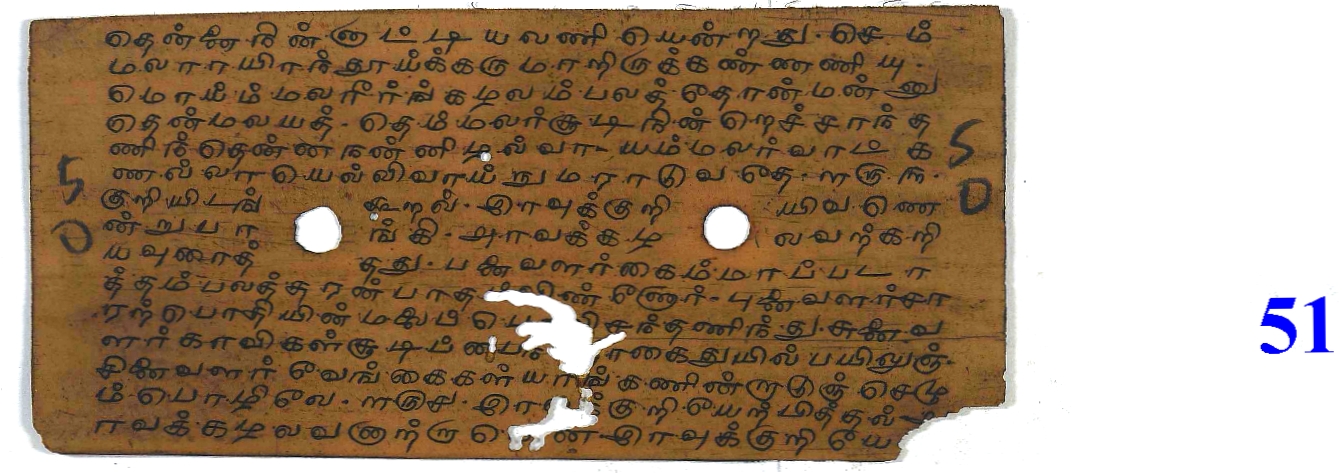 தென்னநின்னாட்டியலணி யென்றது. செம்
மலராயிரந்தூய்க்கரு மாறிருக்கண்ணணியு.
மொய்ம்மலரீர்ங்கழலம்பலத் தோன்மன்னு
தென்மலயத். தெம்மலர்சூடி நின்றெச்சாந்த
ணிந்தென்னநன்னிழல்வா- யம்மலர்வாட் க
ணல்லாயெல்லிவாய் நுமராடுவதே. ளருந.
குறியிடங் கூறல். இரவுக்குறி யிவணெ
ன்றுபா ங்கி. அரவக்கழ லவற்கறி
யவுரைத் தது. பனைவளர்கைம்மாப்படா
த்தம்பலத்தரன்பாதம்விண்ணோர். புனைவளர்சா
ரற்பொதியின் மலைப் சந்தணிந்து. சுனைவ
ளர்காவிகள்சூடிப் கைதுயில் பயிலுஞ்.
சினைவளர் வேங்கைகள் யாங்கணின்றாடுஞ் செழு
ம் பொழிலே. ளருசு. இர குறி யேற்பித்தல்
ரவக்கழலவனாற்ற இரவுக்குறி யே
50
50
51